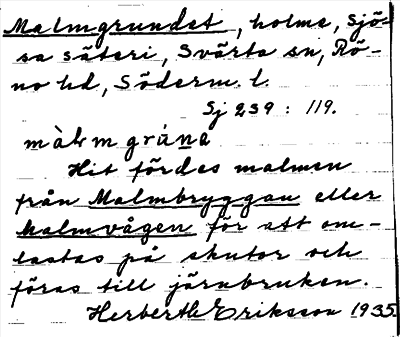 Malmgrundet, holme, Sjö-
sa säteri, Svärta sn, Rö-
no hd, Söderm. l.
Sj 239 : 119.
màlmgrúna
Hit fördes malmen
från Malmbryggan eller
Malmvågen för att om-
lastas på skutor och
föras till järnbruken.
Herberth Eriksson 1935